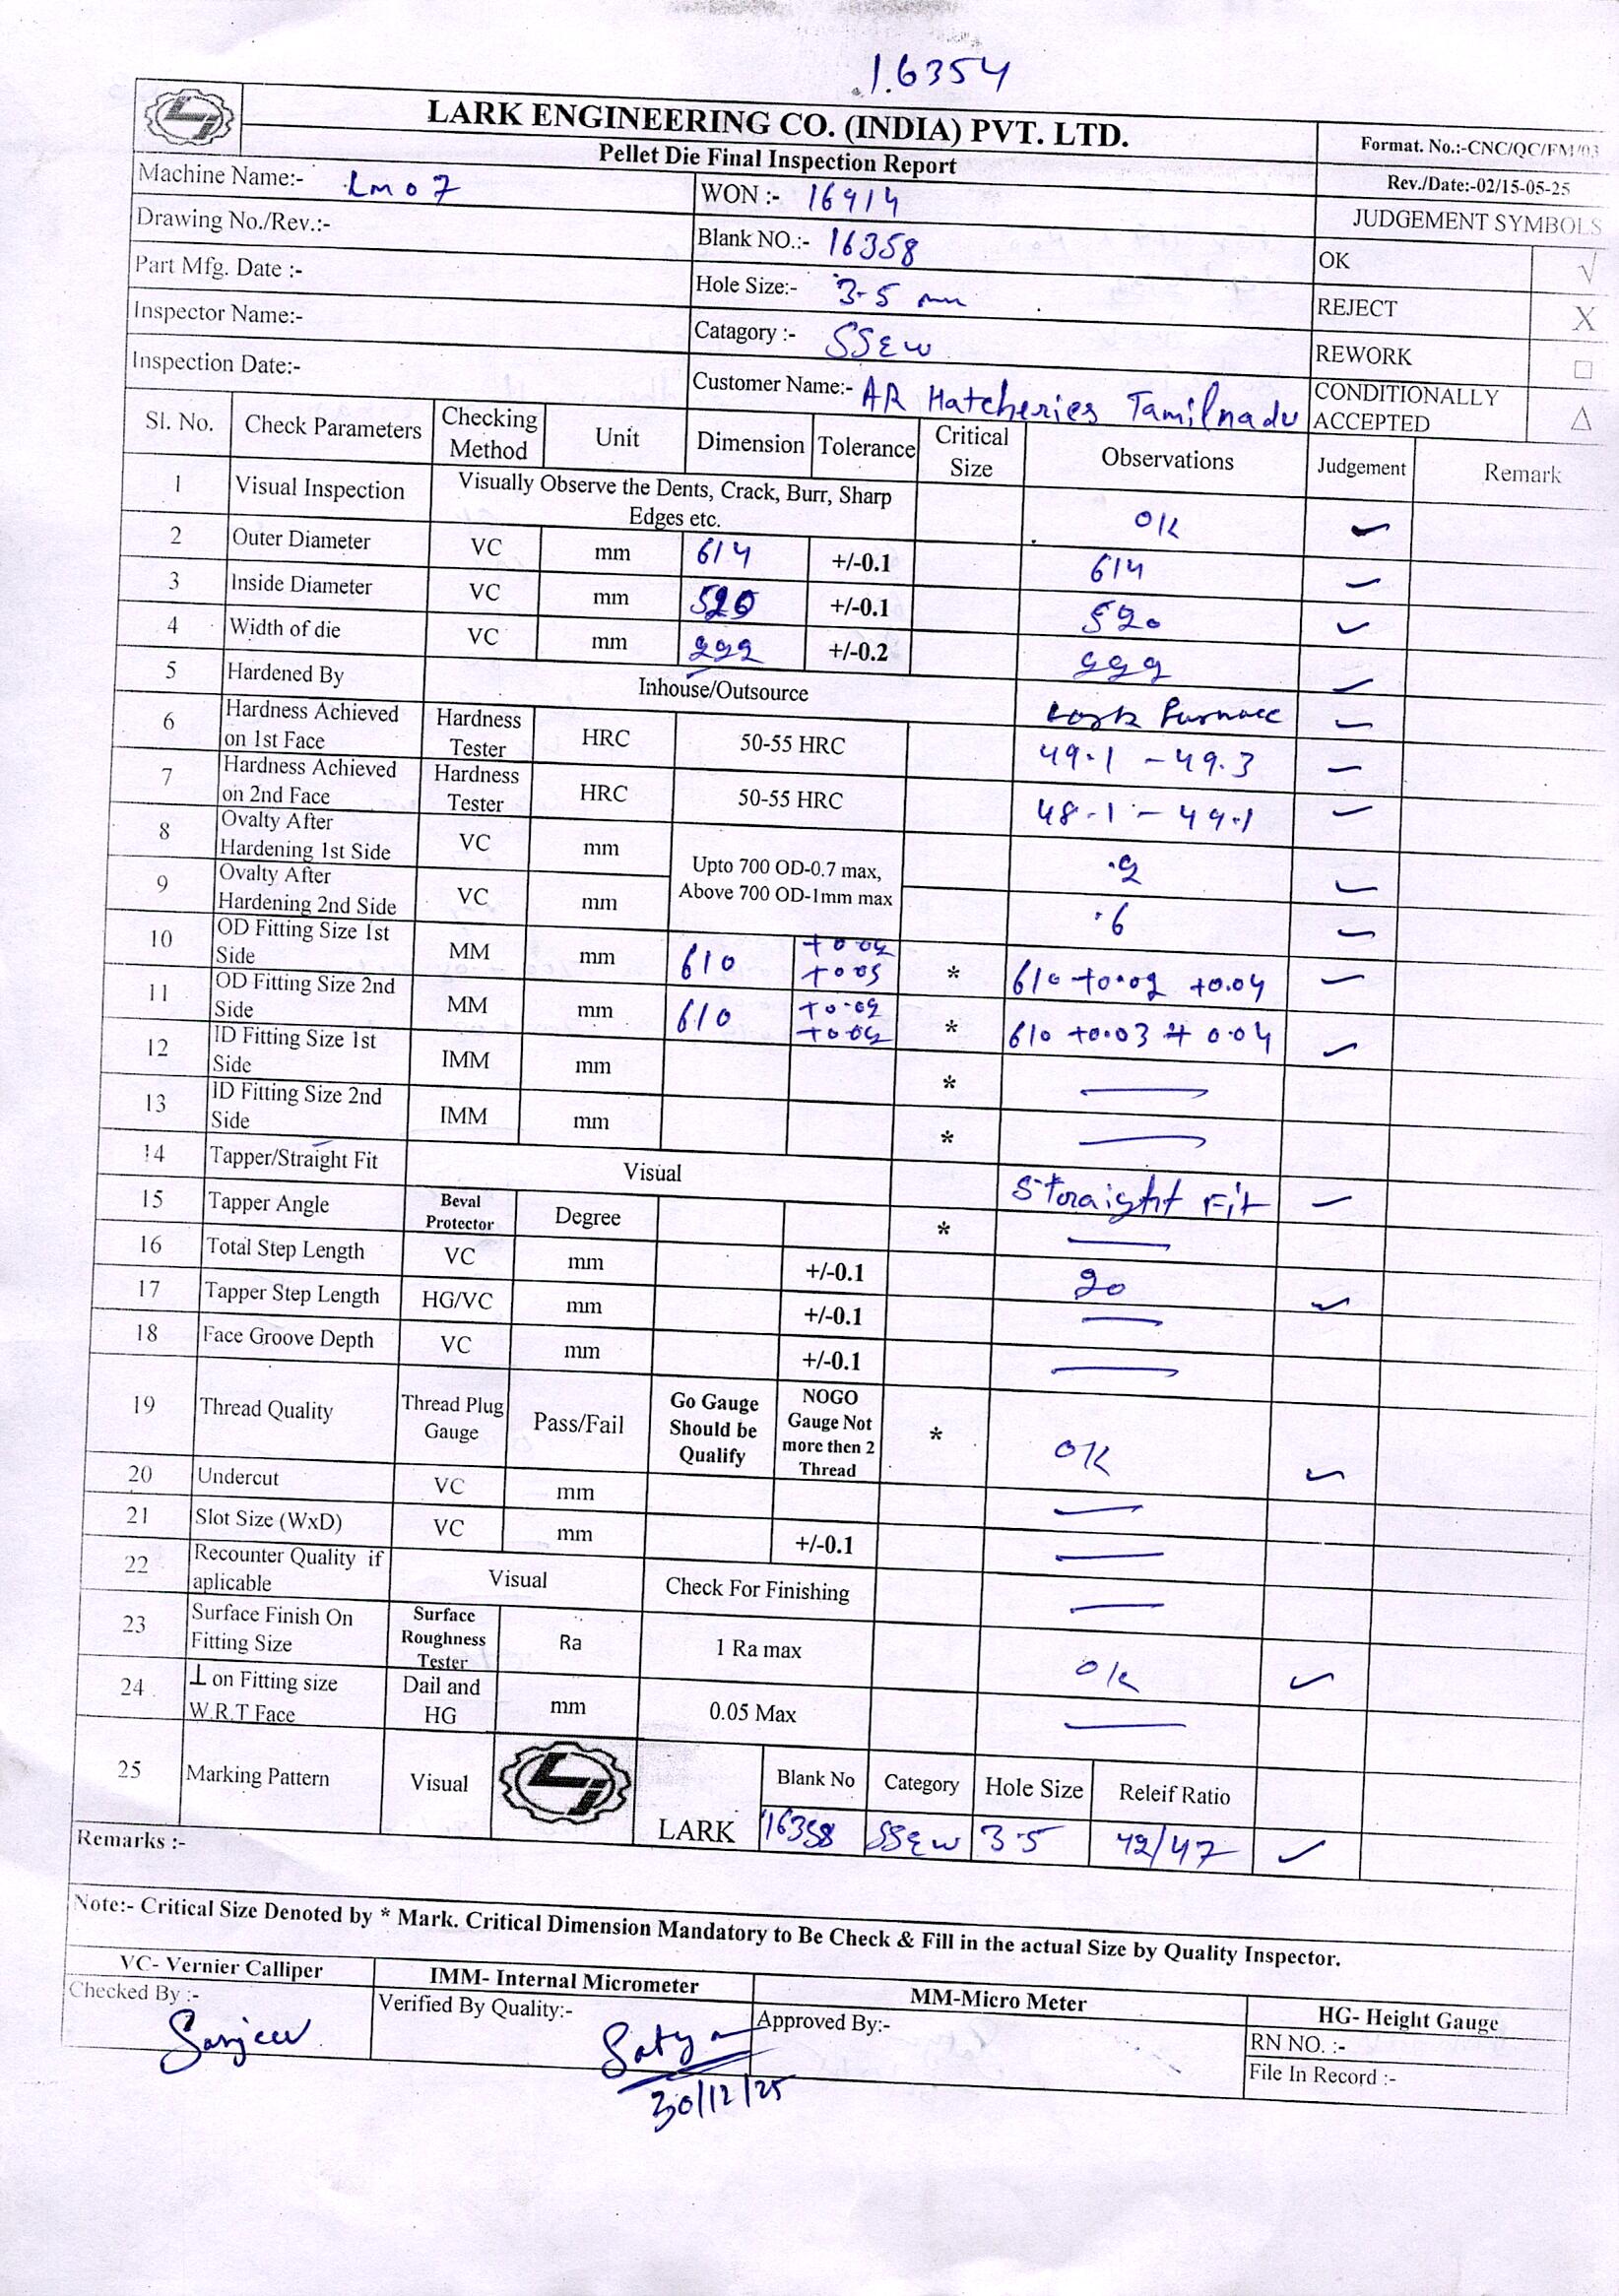 16354
LARK ENGINEERING CO. (INDIA) PVT. LTD.
Pellet Die Final Inspection Report
Format. No.:-CNC/QC/FM/03
Rev./Date:-02/15-05-25
Machine Name:- Lm07
WON :- 16914
JUDGEMENT SYMBOLS
Drawing No./Rev.:-
Blank NO.:- 16358
OK √
Part Mfg. Date :-
Hole Size:- 3.5 mm
REJECT X
Inspector Name:-
Catagory :- SSEW
REWORK □
Inspection Date:-
Customer Name:- AR Hatcheries Tamilnadu
CONDITIONALLY ACCEPTED △
Sl. No. Check Parameters Checking Method Unit Dimension Tolerance Critical Size Observations Judgement Remark
1 Visual Inspection Visually Observe the Dents, Crack, Burr, Sharp Edges etc. OK ✓
2 Outer Diameter VC mm 614 +/-0.1 614 ✓
3 Inside Diameter VC mm 520 +/-0.1 520 ✓
4 Width of die VC mm 222 +/-0.2 222 ✓
5 Hardened By Inhouse/Outsource Lark Furnace ✓
6 Hardness Achieved on 1st Face Hardness Tester HRC 50-55 HRC 49.1 - 49.3 ✓
7 Hardness Achieved on 2nd Face Hardness Tester HRC 50-55 HRC 48.1 - 49.1 ✓
8 Ovalty After Hardening 1st Side VC mm Upto 700 OD-0.7 max, Above 700 OD-1mm max .2 ✓
9 Ovalty After Hardening 2nd Side VC mm .6 ✓
10 OD Fitting Size 1st Side MM mm 610 +0.05 * 610 +0.02 +0.04 ✓
11 OD Fitting Size 2nd Side MM mm 610 +0.02 * 610 +0.03 + 0.04 ✓
12 ID Fitting Size 1st Side IMM mm * —
13 ID Fitting Size 2nd Side IMM mm * —
14 Tapper/Straight Fit Visual Straight Fit ✓
15 Tapper Angle Beval Protector Degree * —
16 Total Step Length VC mm +/-0.1 20 ✓
17 Tapper Step Length HG/VC mm +/-0.1 —
18 Face Groove Depth VC mm +/-0.1 —
19 Thread Quality Thread Plug Gauge Pass/Fail Go Gauge Should be Qualify NOGO Gauge Not more then 2 Thread * OK ✓
20 Undercut VC mm —
21 Slot Size (WxD) VC mm +/-0.1 —
22 Recounter Quality if aplicable Visual Check For Finishing —
23 Surface Finish On Fitting Size Surface Roughness Tester Ra 1 Ra max OK ✓
24 ⊥ on Fitting size W.R.T Face Dail and HG mm 0.05 Max —
25 Marking Pattern Visual LARK Blank No Category Hole Size Releif Ratio
16358 SSEW 3.5 42/47 ✓
Remarks :-
Note:- Critical Size Denoted by * Mark. Critical Dimension Mandatory to Be Check & Fill in the actual Size by Quality Inspector.
VC- Vernier Calliper IMM- Internal Micrometer MM-Micro Meter HG- Height Gauge
Checked By :- Sanjeev
Verified By Quality:- Satya
30/12/25
Approved By:-
RN NO. :-
File In Record :-